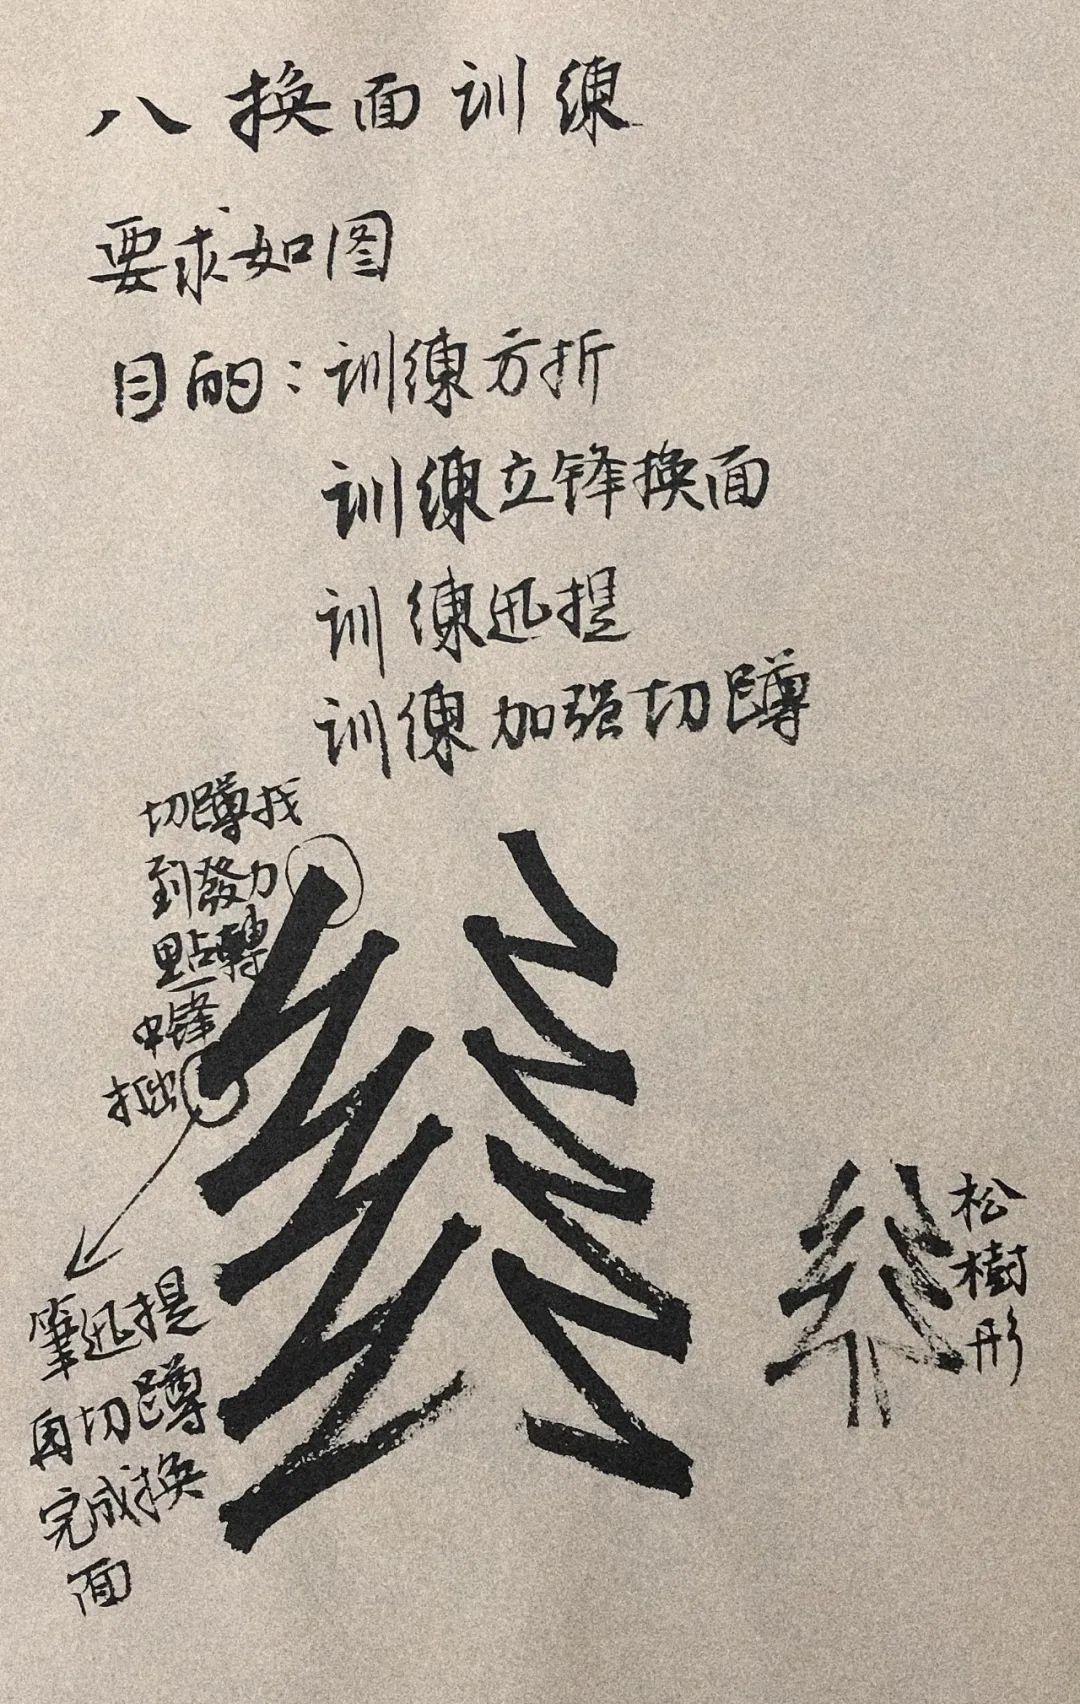 八换面训練
要求如图
目的：训練方折
训練立锋换面
训練迅提
训練加强切蹲
切蹲找
到發力
點轉
中锋
拙
筆迅提
再切蹲
完成换
面
松
樹
形